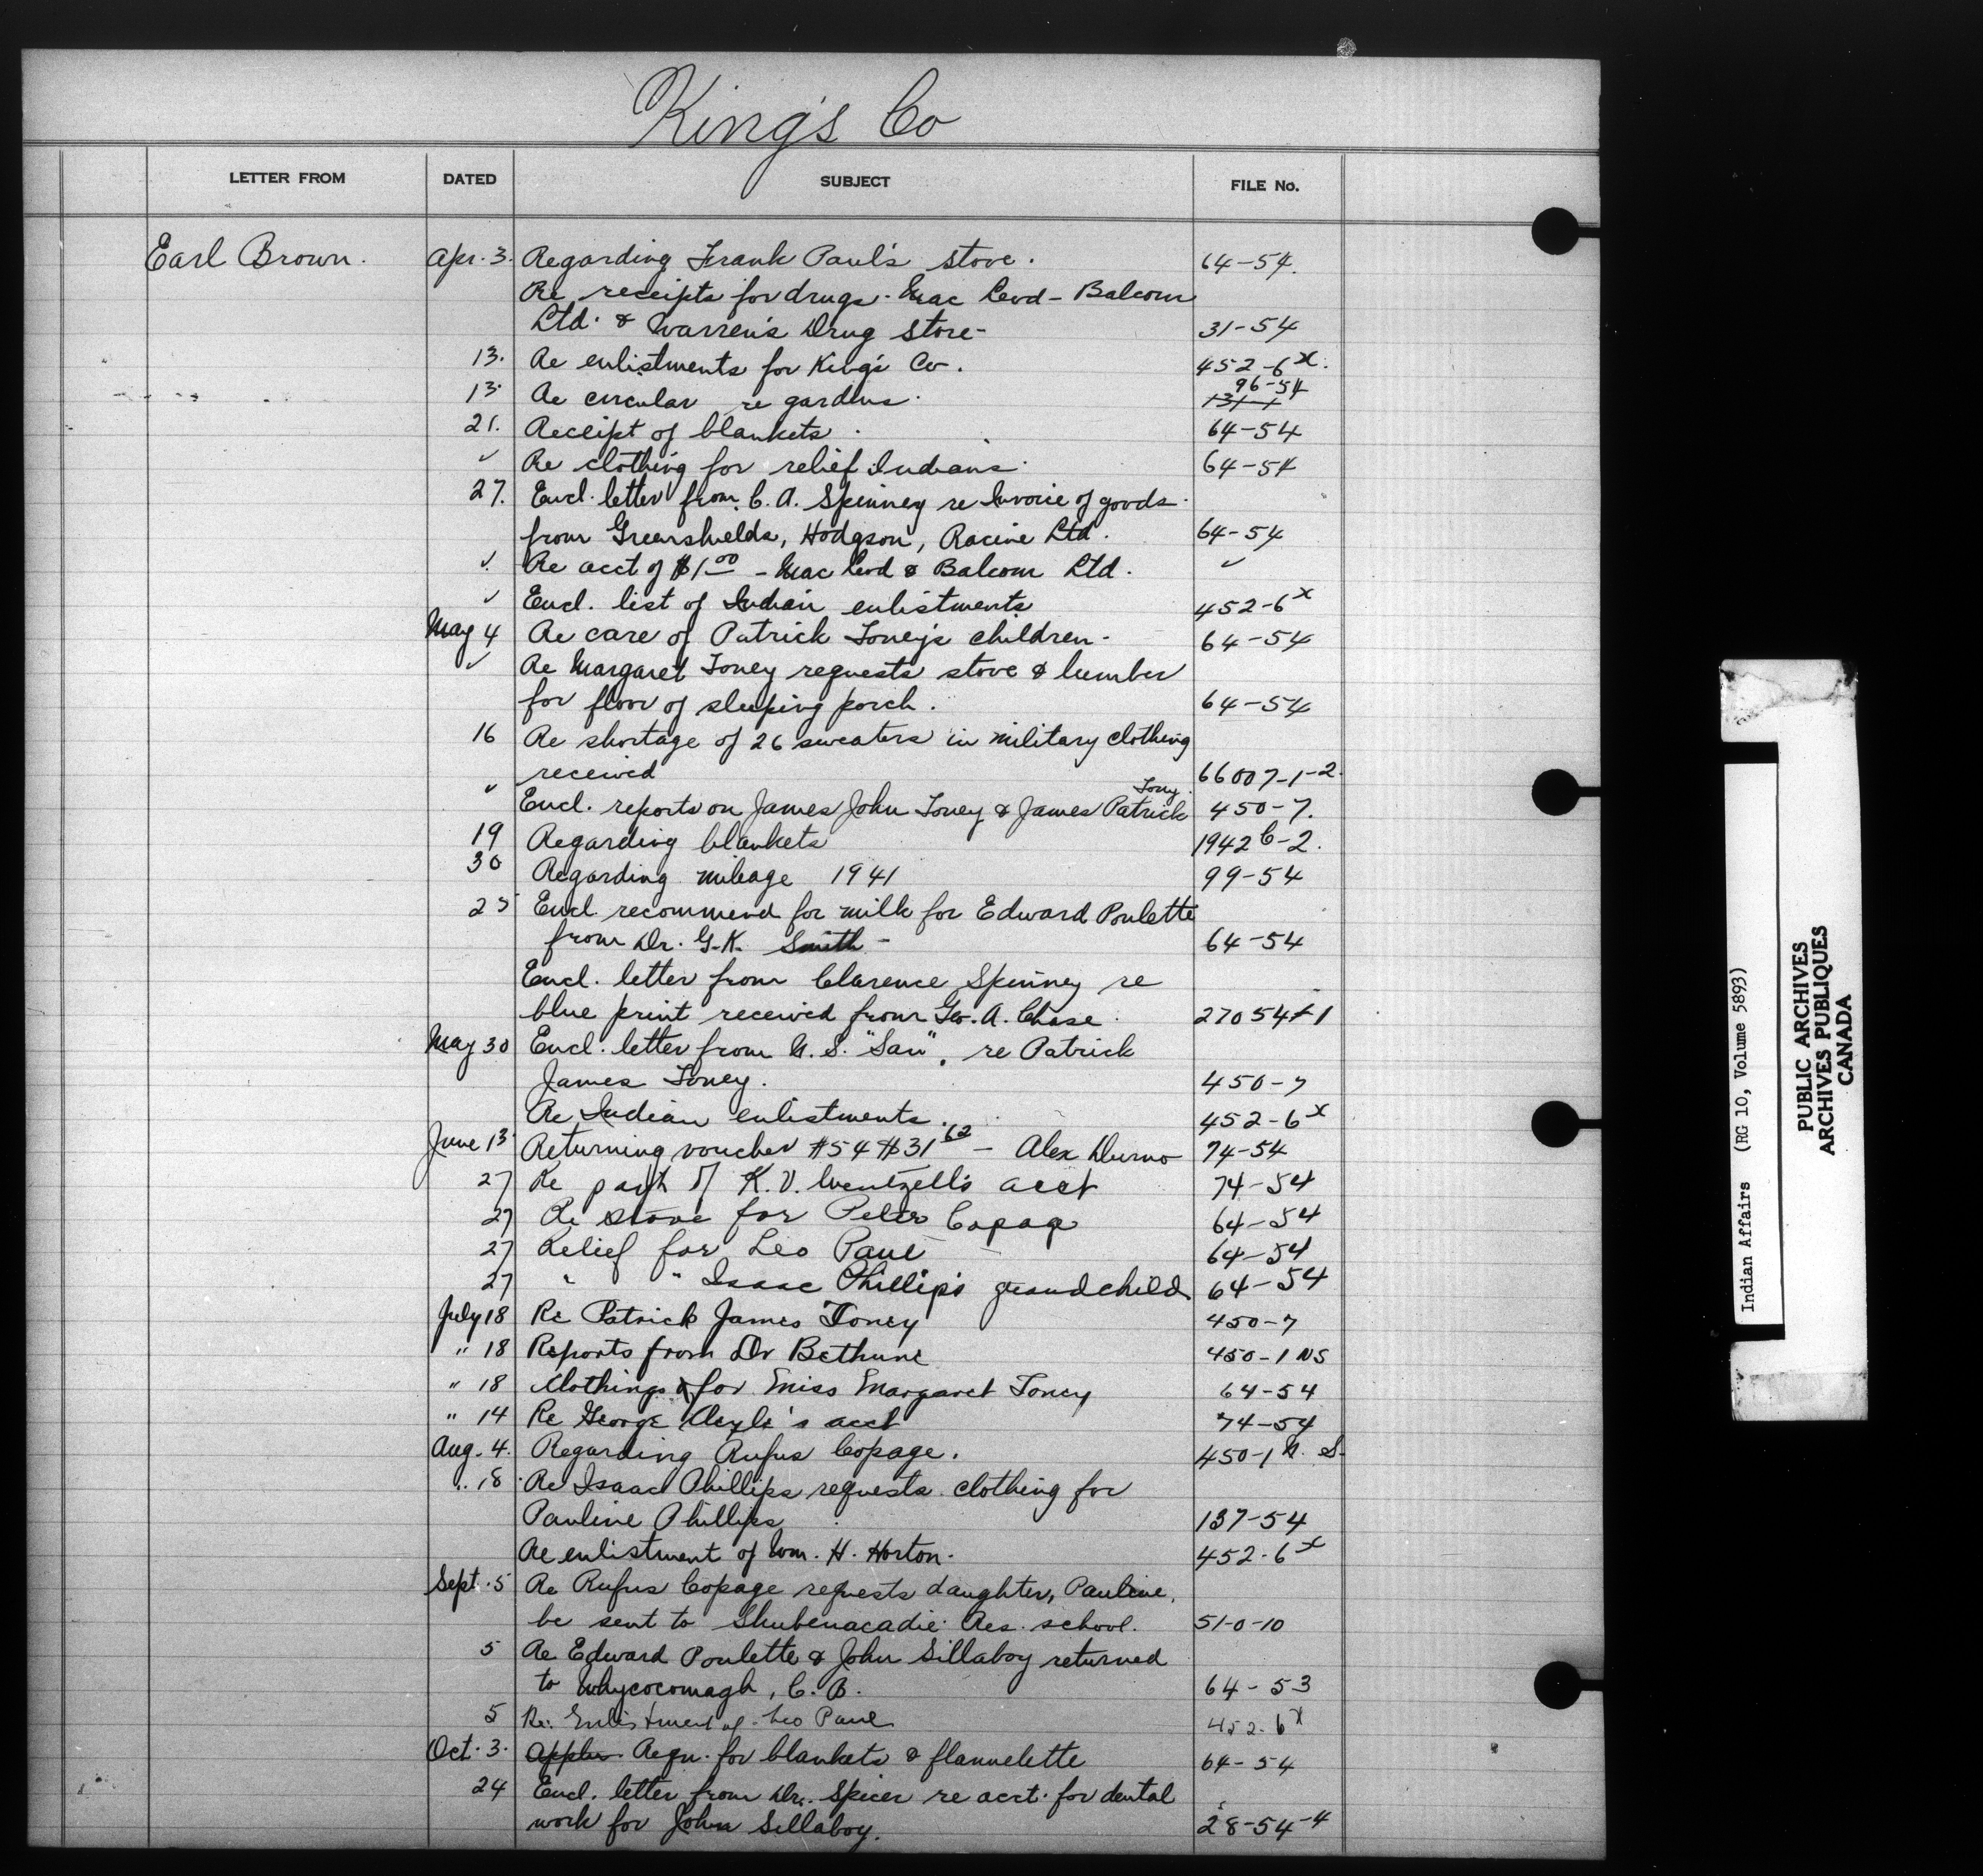 King's Co
LETTER FROM DATED SUBJECT FILE No.
Earl Brown. Apr. 3. Regarding Frank Paul's stove. 64-54.
Re receipts for drugs. Mac Leod - Balcom
Ltd. & Warren's Drug Store- 31-54
13. Re enlistments for King's Co. 452-6x.
13. Re circular re gardens. 96-54
21. Receipt of blankets. 64-54
✓ Re clothing for relief Indians. 64-54
27. Encl. letter from C. A. Spinney re Invoice of goods
from Greenshields, Hodgson, Racine Ltd. 64-54
✓ Re acct of $1.00 - Mac Leod & Balcom Ltd. ✓
✓ Encl. list of Indian enlistments 452-6x
May 4 Re care of Patrick Toney's children- 64-54
✓ Re Margaret Toney requests stove & lumber
for floor of sleeping porch. 64-54
16 Re shortage of 26 sweaters in military clothing
received 66007-1-2.
✓ Encl. reports on James John Toney & James Patrick Tony. 450-7.
19 Regarding blankets 1942 C-2.
30 Regarding mileage 1941 99-54
25 Encl. recommend for milk for Edward Poulette
from Dr. G. K. Smith - 64-54
Encl. letter from Clarence Spinney re
blue print received from Geo. A. Chase. 27054-1
May 30 Encl. letter from N. S. "San". re Patrick
James Toney. 450-7
Re Indian enlistments. 452-6x
June 13 Returning voucher #54 $31.62 - Alex Durno 74-54
27 Re payt of K. V. Wentzell's acct 74-54
27 Re stove for Peter Copage 64-54
27 Relief for Leo Paul 64-54
27 " " Isaac Phillip's grandchild 64-54
July 18 Re Patrick James Toney 450-7
" 18 Reports from Dr Bethune 450-1 NS
" 18 Clothing for Miss Margaret Toney 64-54
" 14 Re George acct 74-54
Aug. 4. Regarding Rufus Copage. 450-1 N. S.
" 18 Re Isaac Phillips requests clothing for
Pauline Phillips 137-54
Re enlistment of Wm. H. Horton. 452-6x
Sept. 5 Re Rufus Copage requests daughter, Pauline,
be sent to Shubenacadie Res. school. 51-0-10
5 Re Edward Poulette & John Sillaboy returned
to Whycocomagh, C. B. 64-53
5 Re: Enlistment of Leo Paul 452-6x
Oct. 3. Reqn. for blankets & flannelette 64-54
24 Encl. letter from Dr. Spicer re acct. for dental
work for John Sillaboy. 28-54-4
Indian Affairs (RG 10, Volume 5893)
PUBLIC ARCHIVES
ARCHIVES PUBLIQUES
CANADA